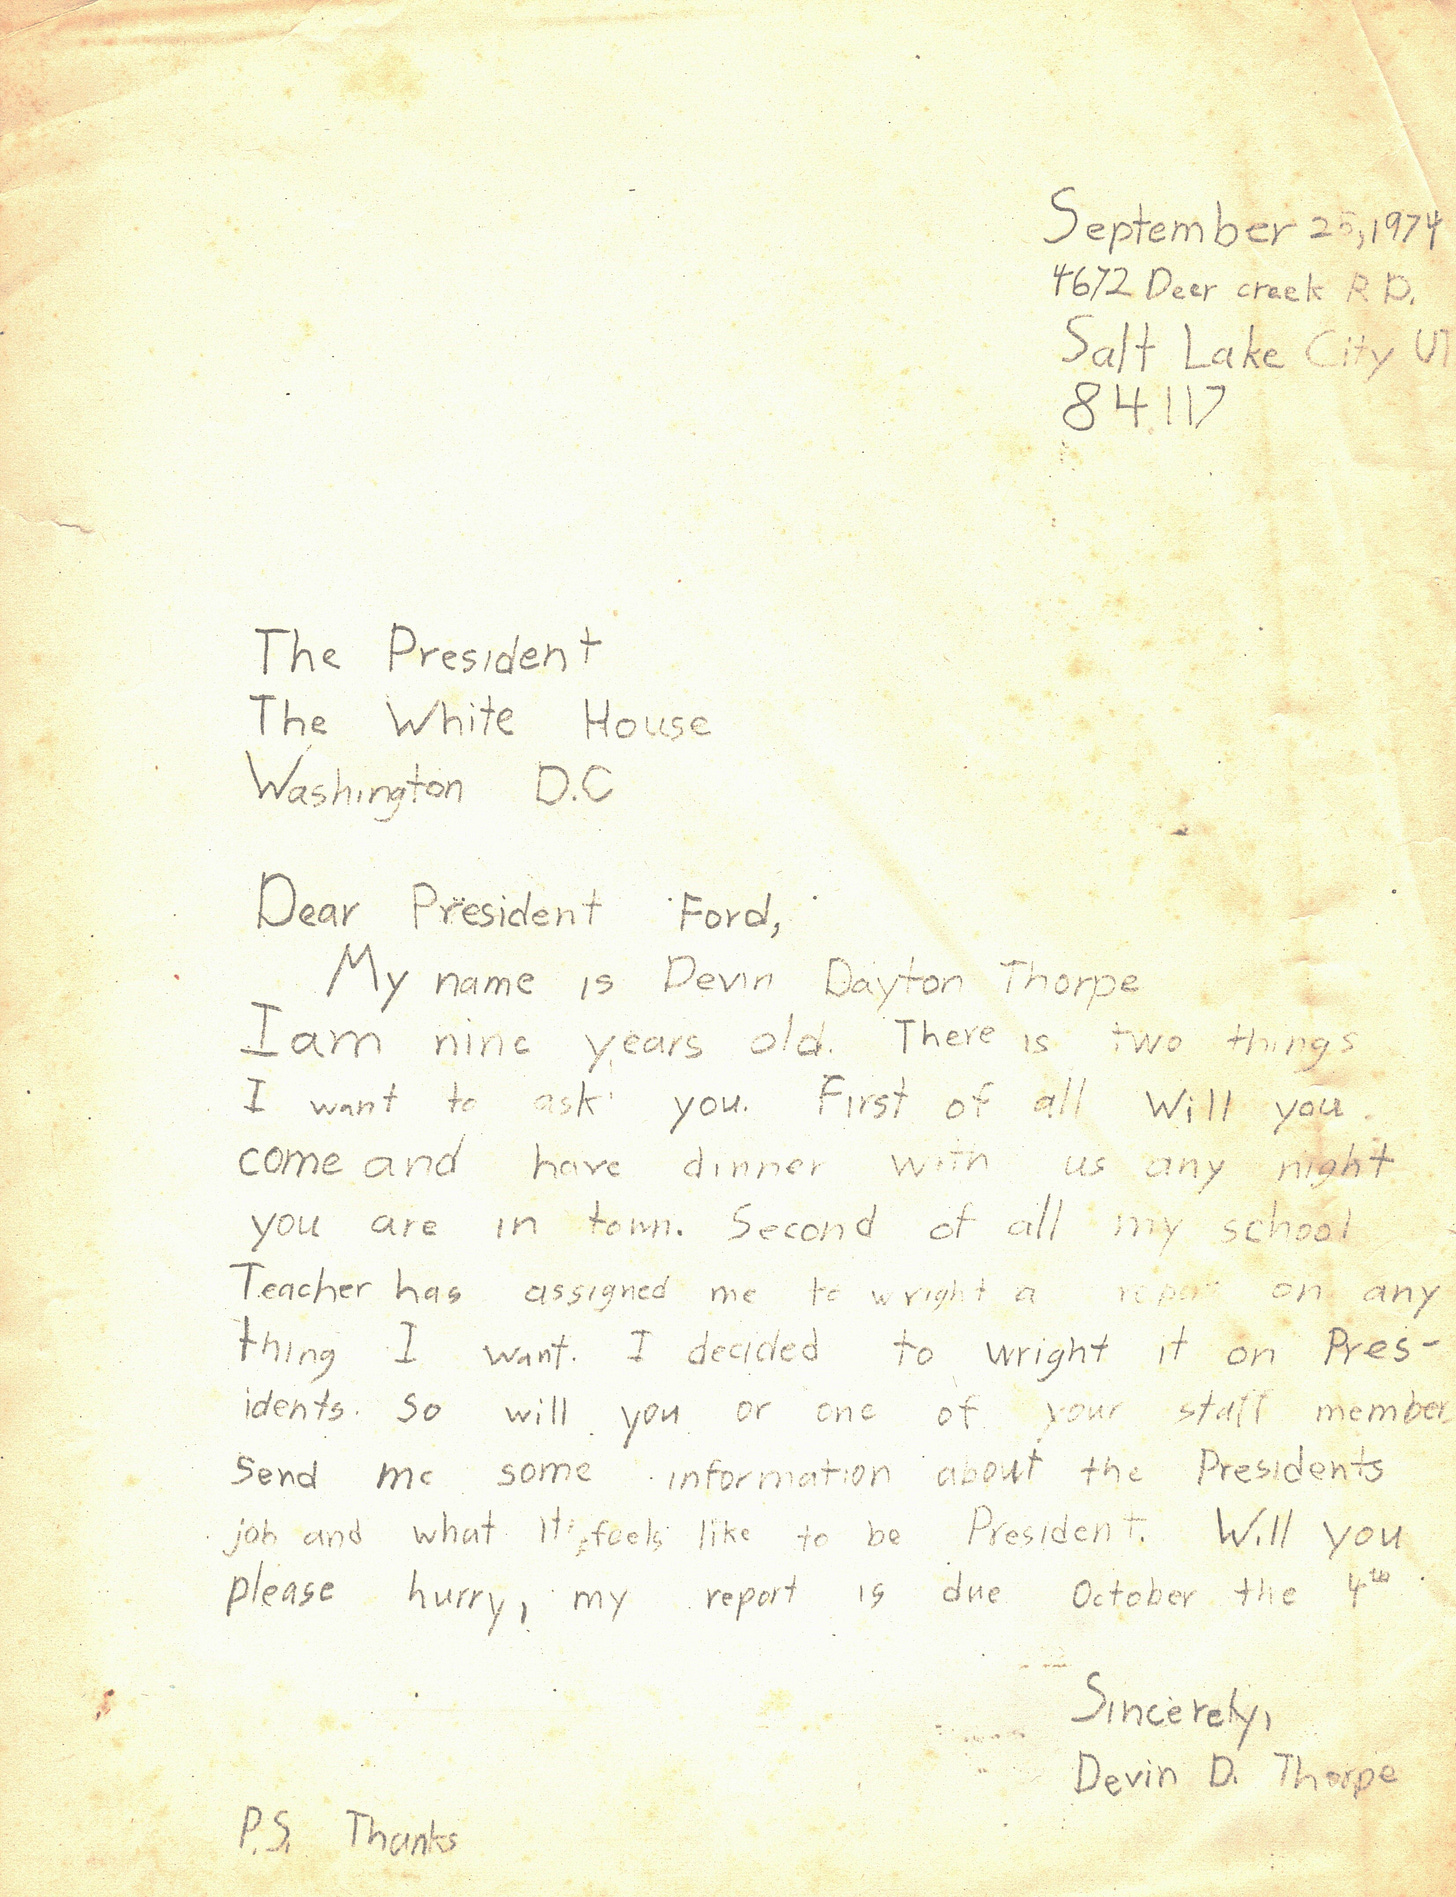 September 25, 1974
4672 Deer creek RD.
Salt Lake City UT
84117
The President
The White House
Washington D.C
Dear President Ford,
My name is Devin Dayton Thorpe
I am nine years old. There is two things
I want to ask you. First of all Will you
come and have dinner with us any night
you are in town. Second of all my school
Teacher has assigned me to wright a on any
thing I want. I decided to wright it on Pres-
idents. So will you or one of your staff member
Send me some information about the Presidents
job and what it feels like to be President. Will you
please hurry, my report is due October the 4th
Sincerely,
Devin D. Thorpe
P.S. Thanks